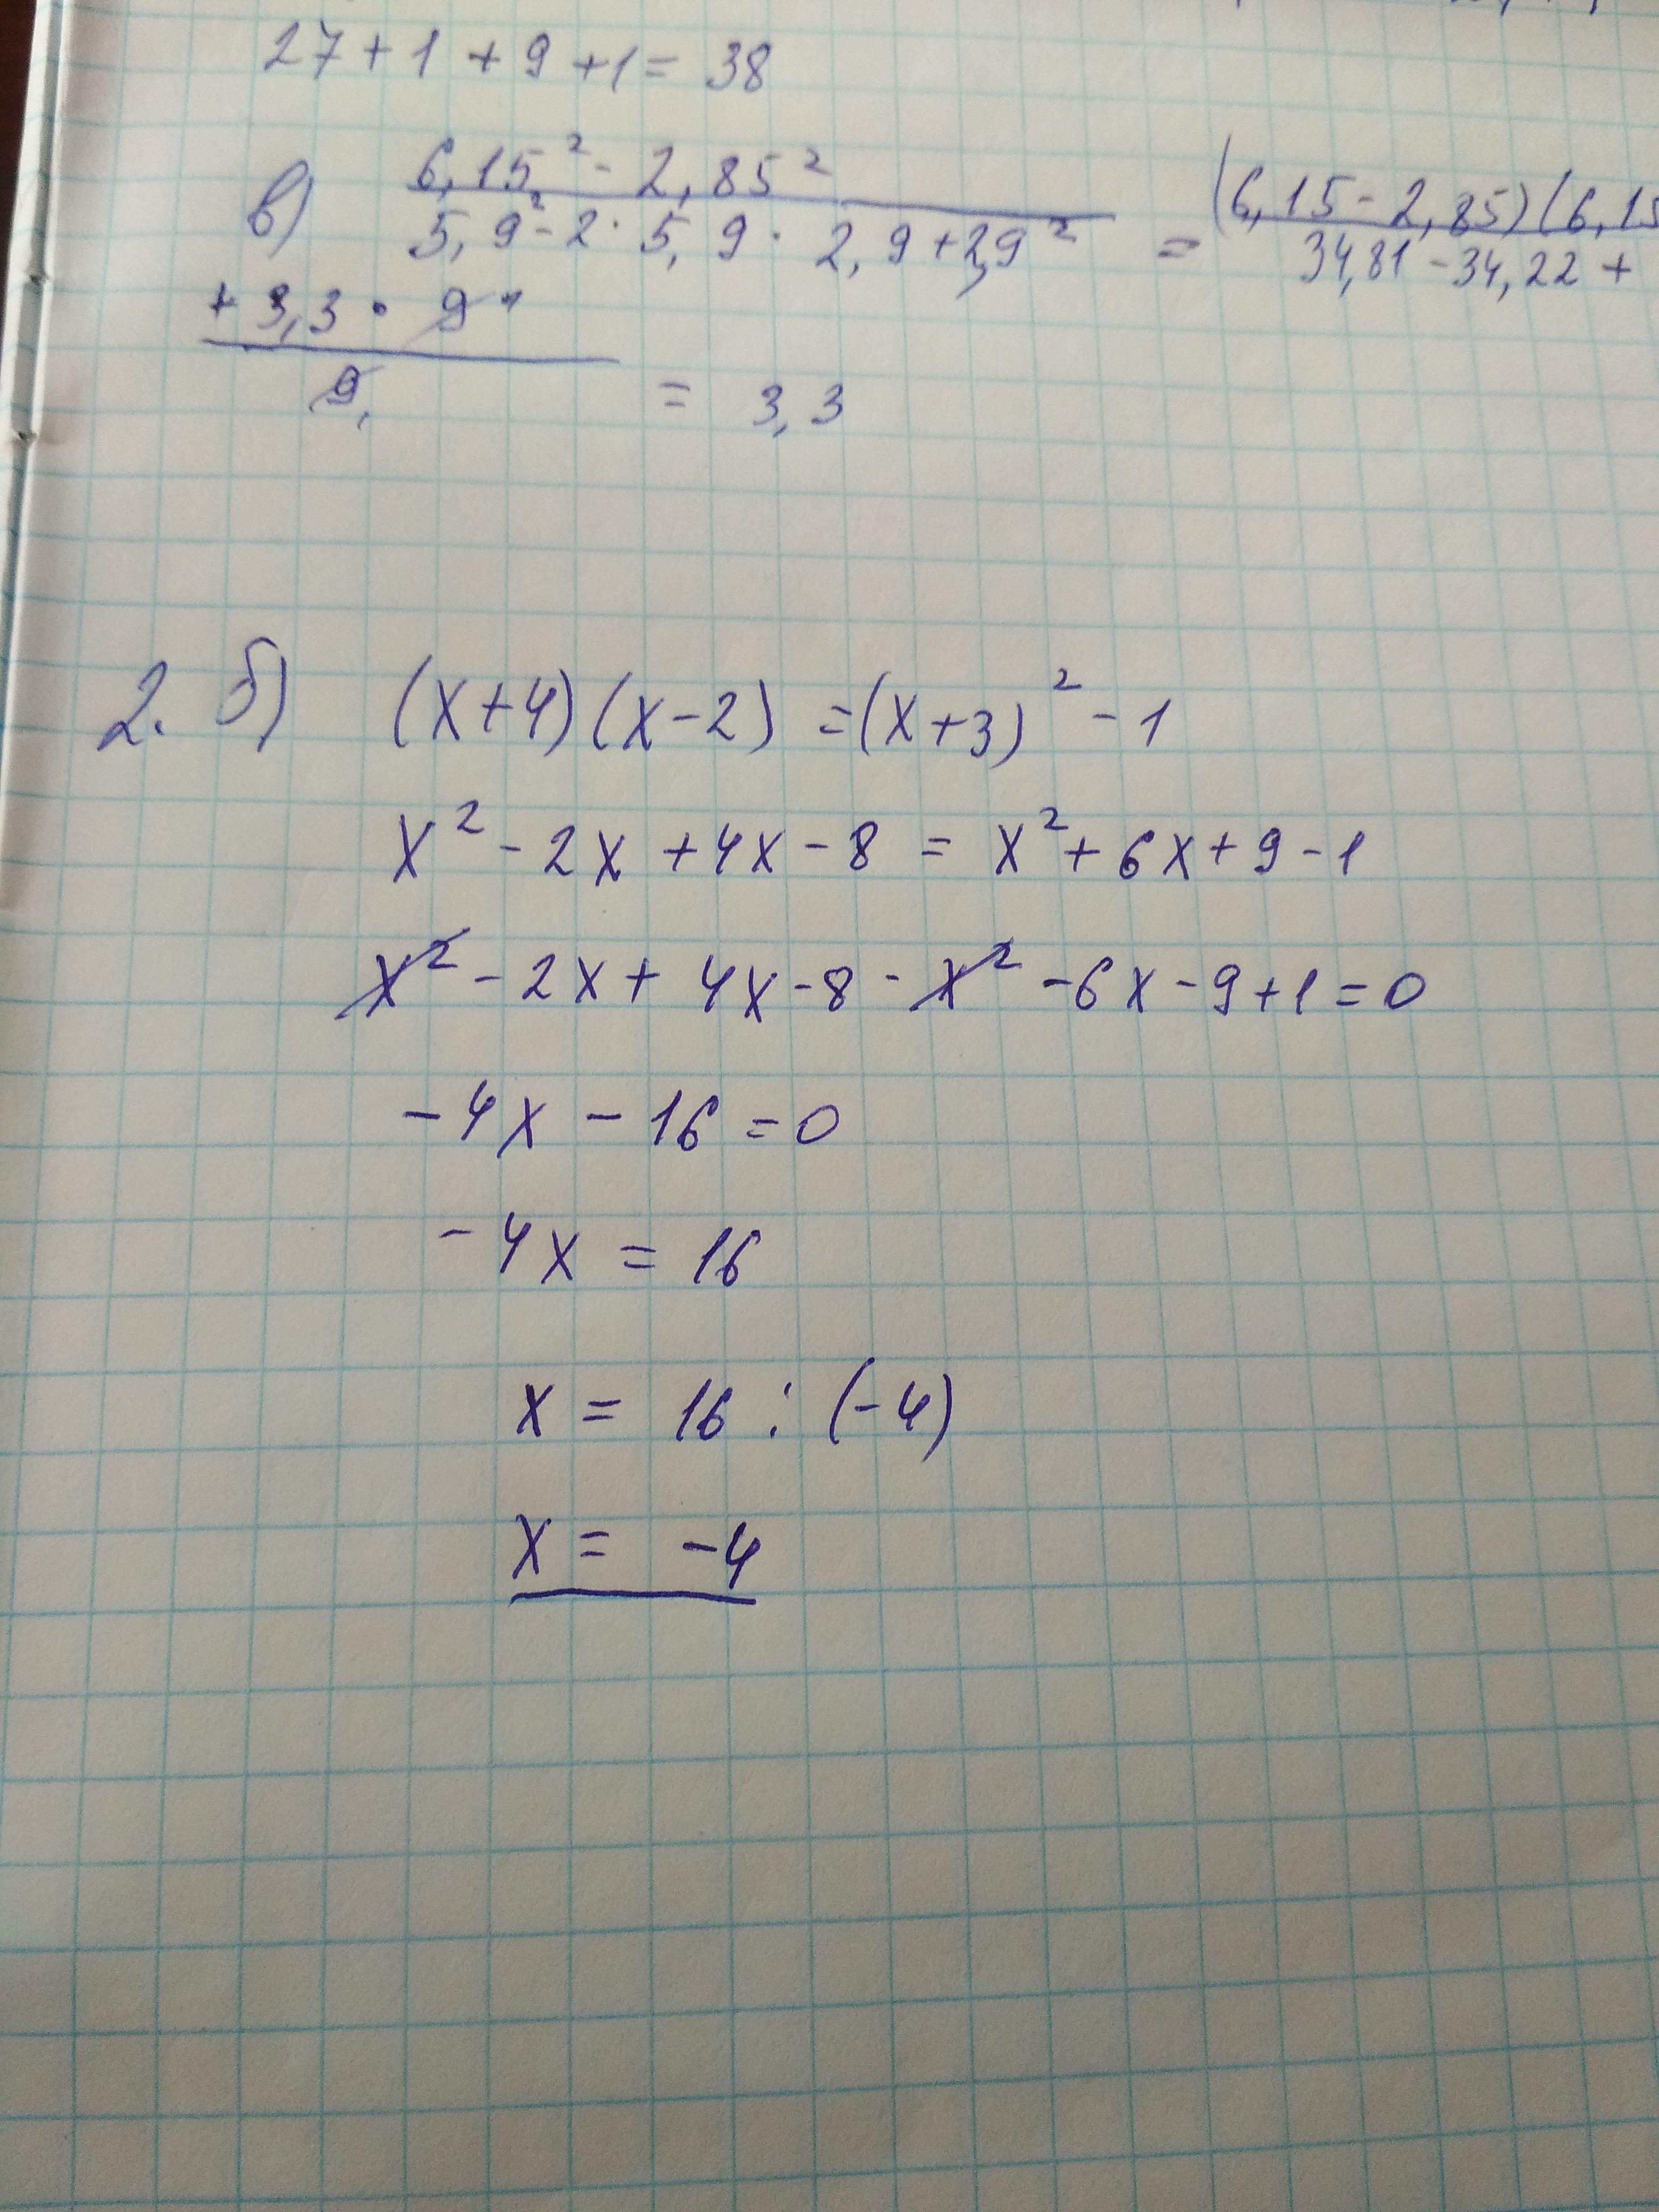 27 + 1 + 9 + 1 = 38
в) 6,15² - 2,85² / 5,9² - 2 · 5,9 · 2,9 + 2,9² = (6,15 - 2,85)(6,15 / 34,81 - 34,22 +
+ 3,3 · 9 / 9 = 3,3
2. б) (x+4)(x-2) = (x+3)² - 1
x² - 2x + 4x - 8 = x² + 6x + 9 - 1
x² - 2x + 4x - 8 - x² - 6x - 9 + 1 = 0
-4x - 16 = 0
-4x = 16
x = 16 : (-4)
x = -4